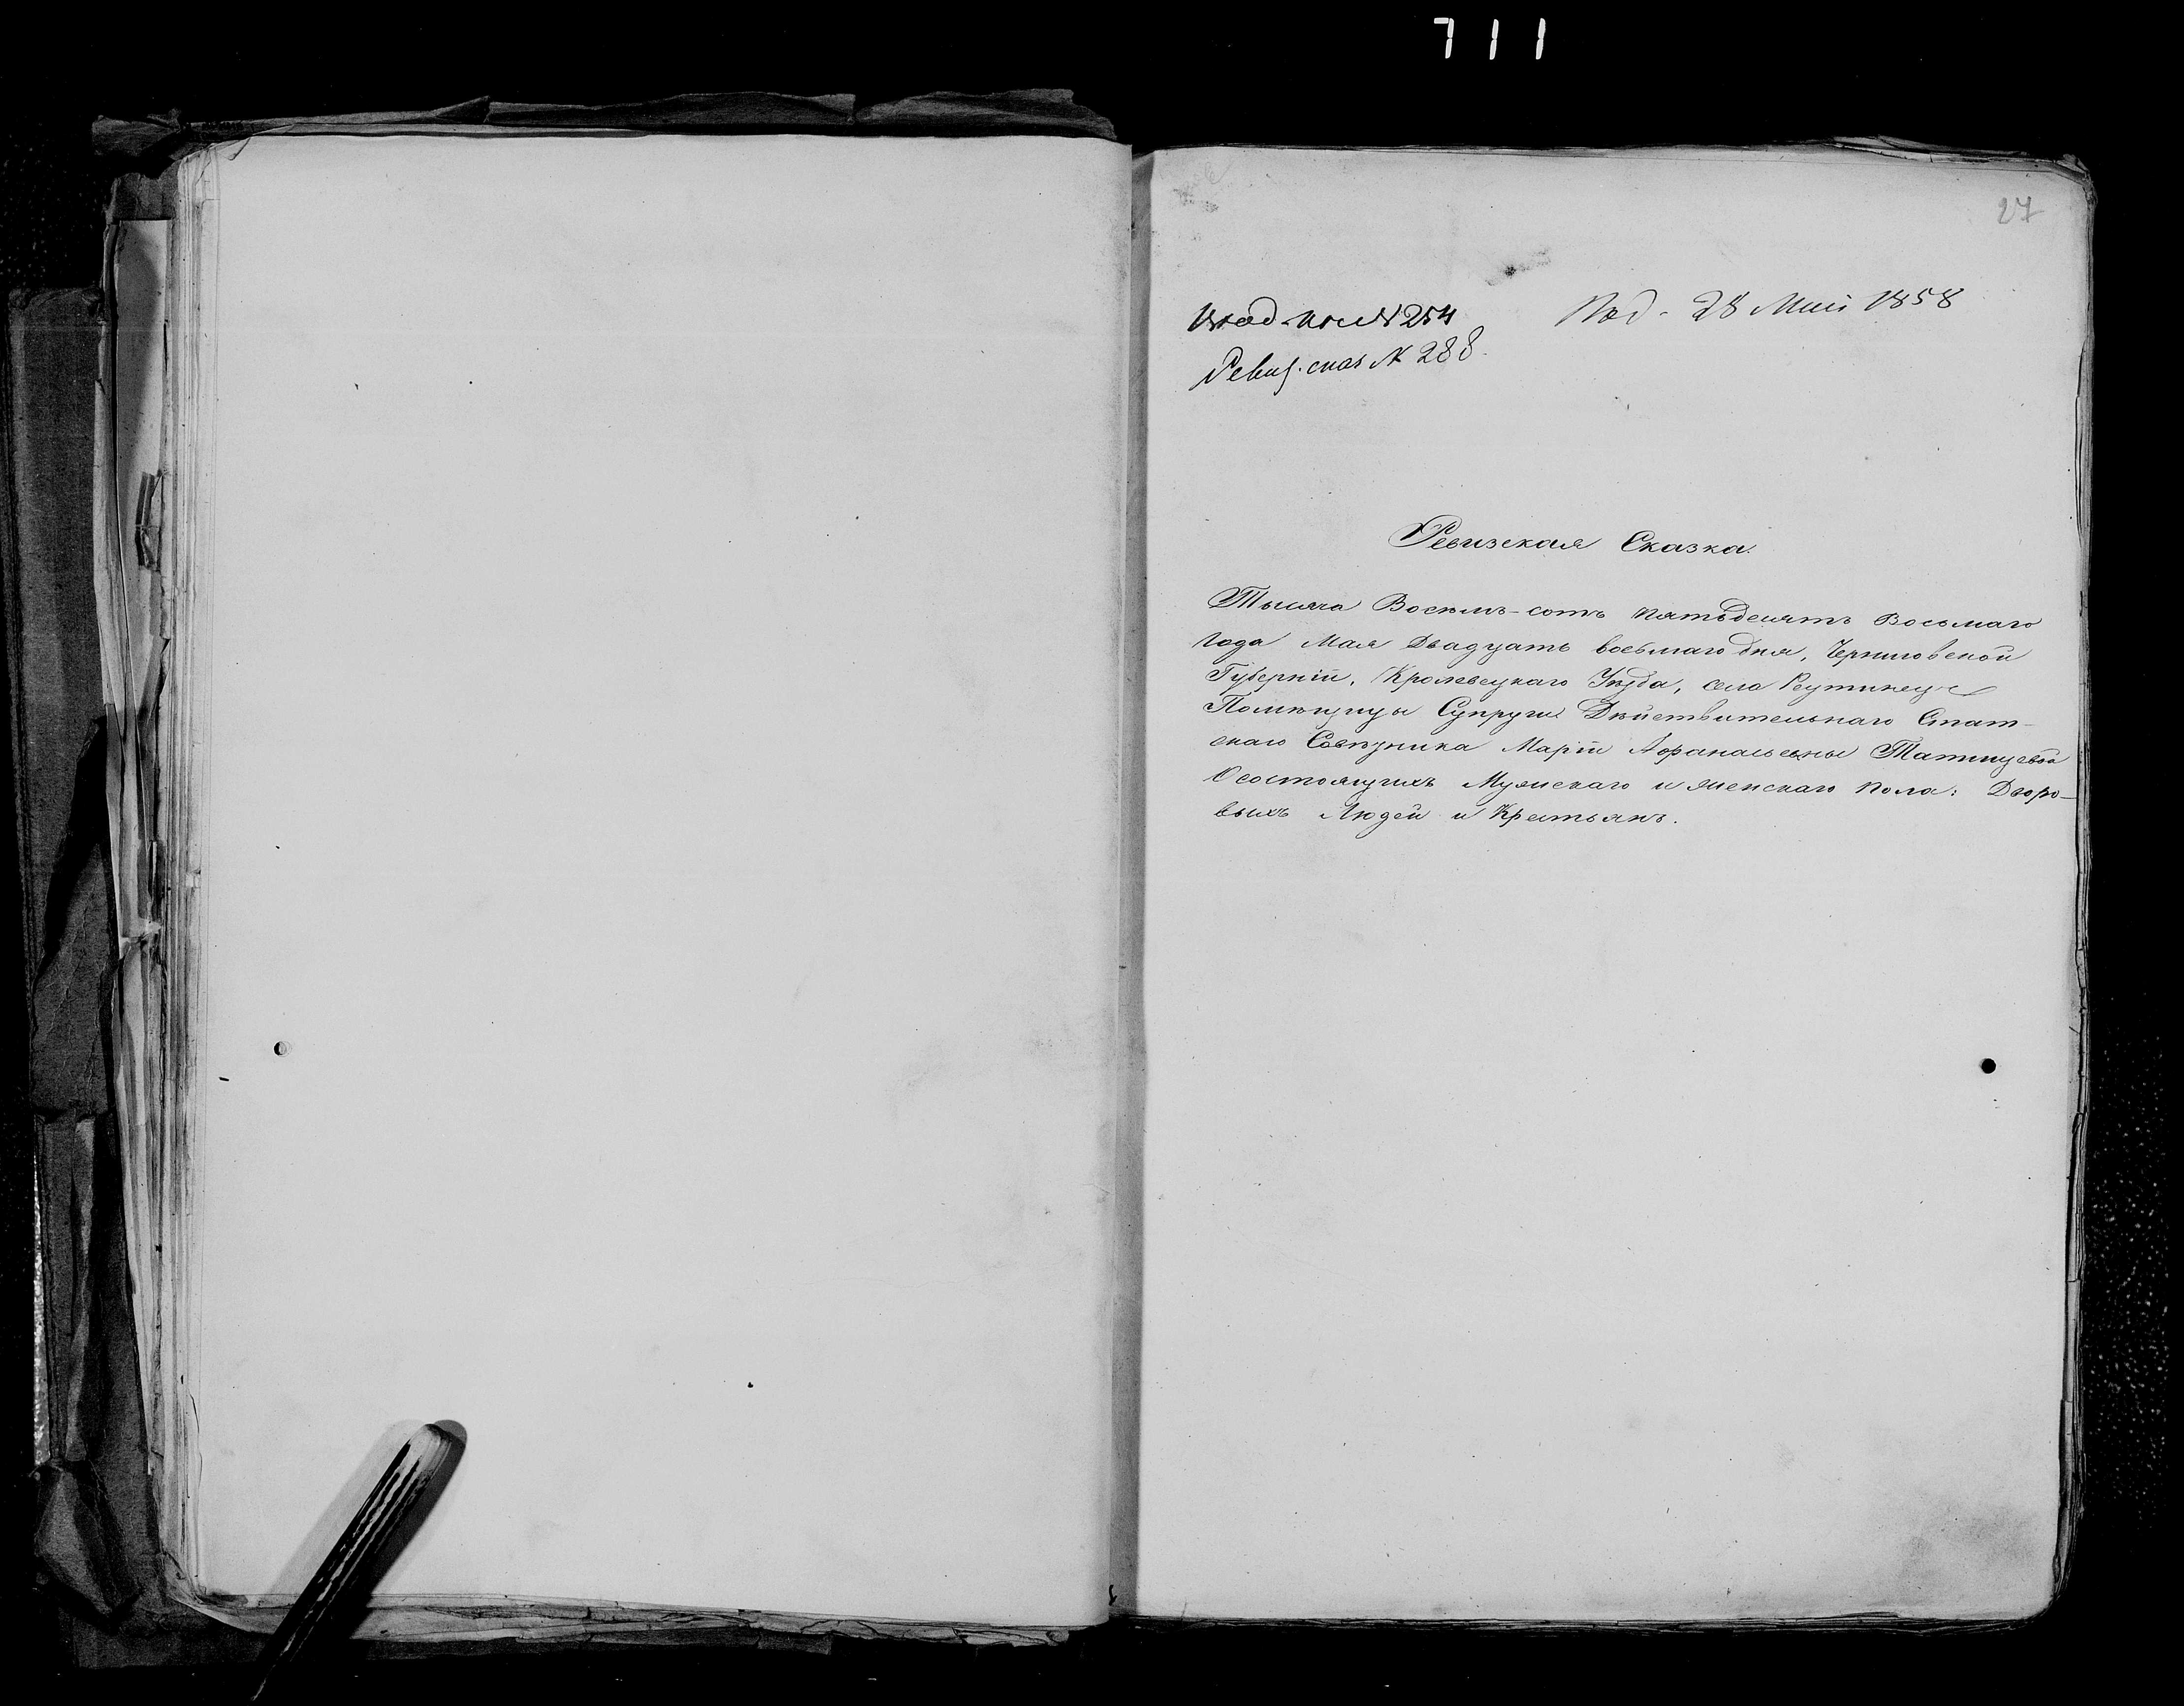 711
27
Вход. нос № 254
Под. 28 Маій 1858
Ревиз. сказ № 288.
Ревизская Сказка.
Тысяча Восемь-сотъ пятьдесятъ Восьмаго
года Мая Двадцать восьмаго дня, Черниговской
Губерніи, Кролевецкаго Уѣзда, села Реутинец
Помѣщицы Супруги Дѣйствительнаго Стат-
скаго Совѣтника Маріи Афанасьевны Татищевой
О состоящихъ Мужскаго и женскаго пола: Дворо-
выхъ Людей и Крестьянъ.